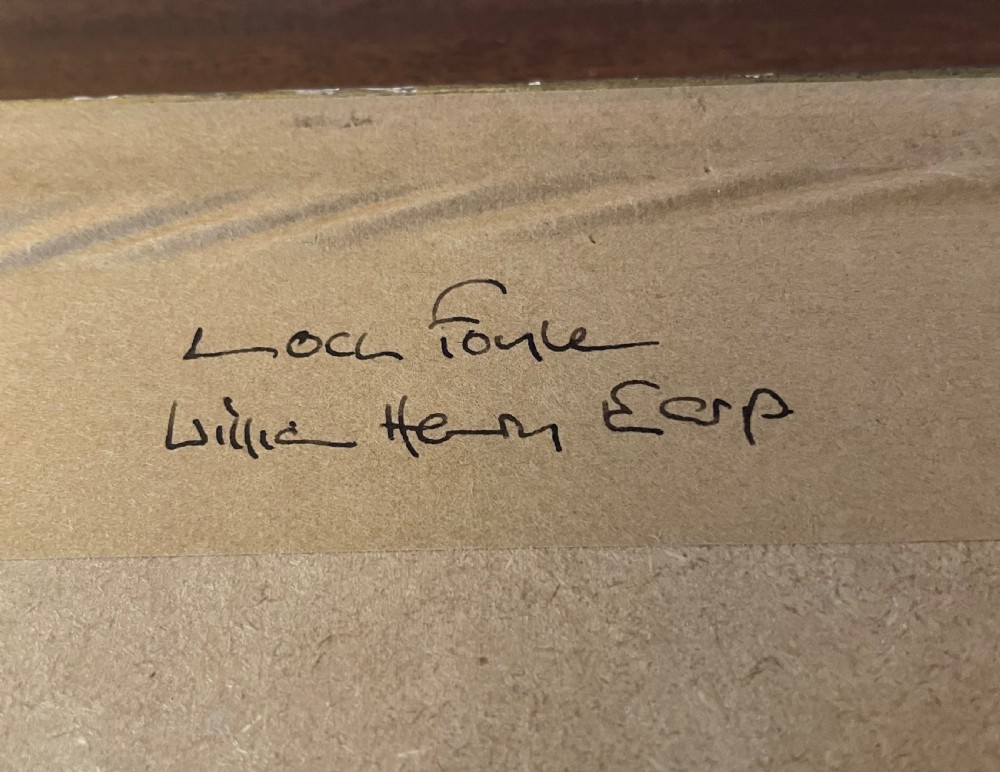 Loch Foyle
William Henry Earp